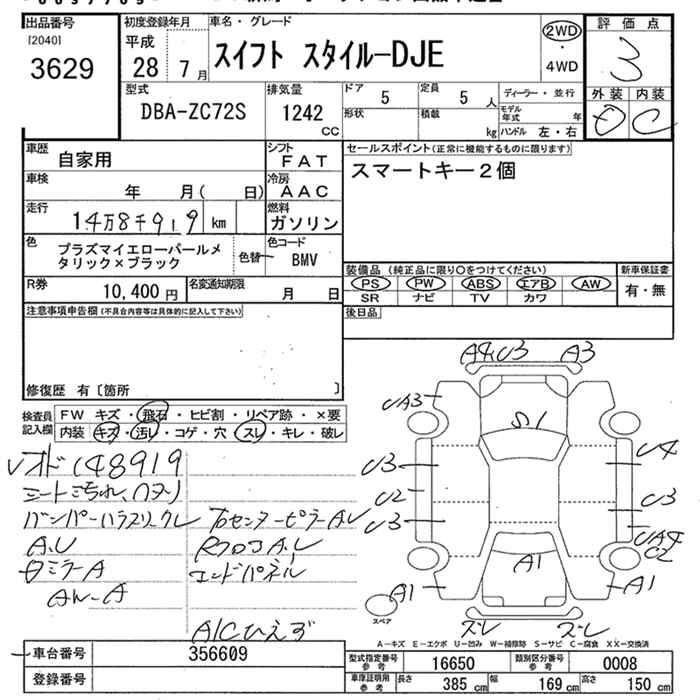 出品番号
[2040]
3629
初度登録年月
平成
28 7 月
車名・グレード
スイフト スタイルーDJE
2WD
・
4WD
評価点
3
外装 内装
D C
型式
DBA-ZC72S
排気量
1242
cc
ドア 5
定員 5 人
形状
積載 kg
ディーラー・並行
モデル年式 年
ハンドル 左・右
車歴
自家用
シフト
FAT
車検
年 月( 日)
冷房
AAC
走行
14万8千919 km
燃料
ガソリン
色
プラズマイエローパールメ
タリック×ブラック
色替
色コード
BMV
R券
10,400 円
名変通知期限
月 日
セールスポイント(正常に機能するものに限ります)
スマートキー2個
装備品(純正品に限り○をつけてください)
PS PW ABS エアB AW
SR ナビ TV カワ
新車保証書
有・無
後日品
注意事項申告欄(不具合内容等は具体的に記入して下さい)
修復歴 有〔箇所 〕
検査員
記入欄
FW キズ・飛石・ヒビ割・リペア跡・×要
内装 キズ・汚レ・コゲ・穴・スレ・キレ・破レ
オド148919
シート汚れ、
A.U
ミラーA
センターピラーA.U
エンドパネル
A/Cひえず
A4 U3 A3
UA3
S1
U3
U2
U3
U4
U3
UA4
U2
A1
A1
A1
スペア
ズレ ズレ
A-キズ E-エクボ U-凹み W-補修跡 S-サビ C-腐食 XX-交換済
車台番号 356609
登録番号
型式指定番号
参考
16650
類別区分番号
参考
0008
車庫証明用
参考
長さ 385 cm
幅 169 cm
高さ 150 cm